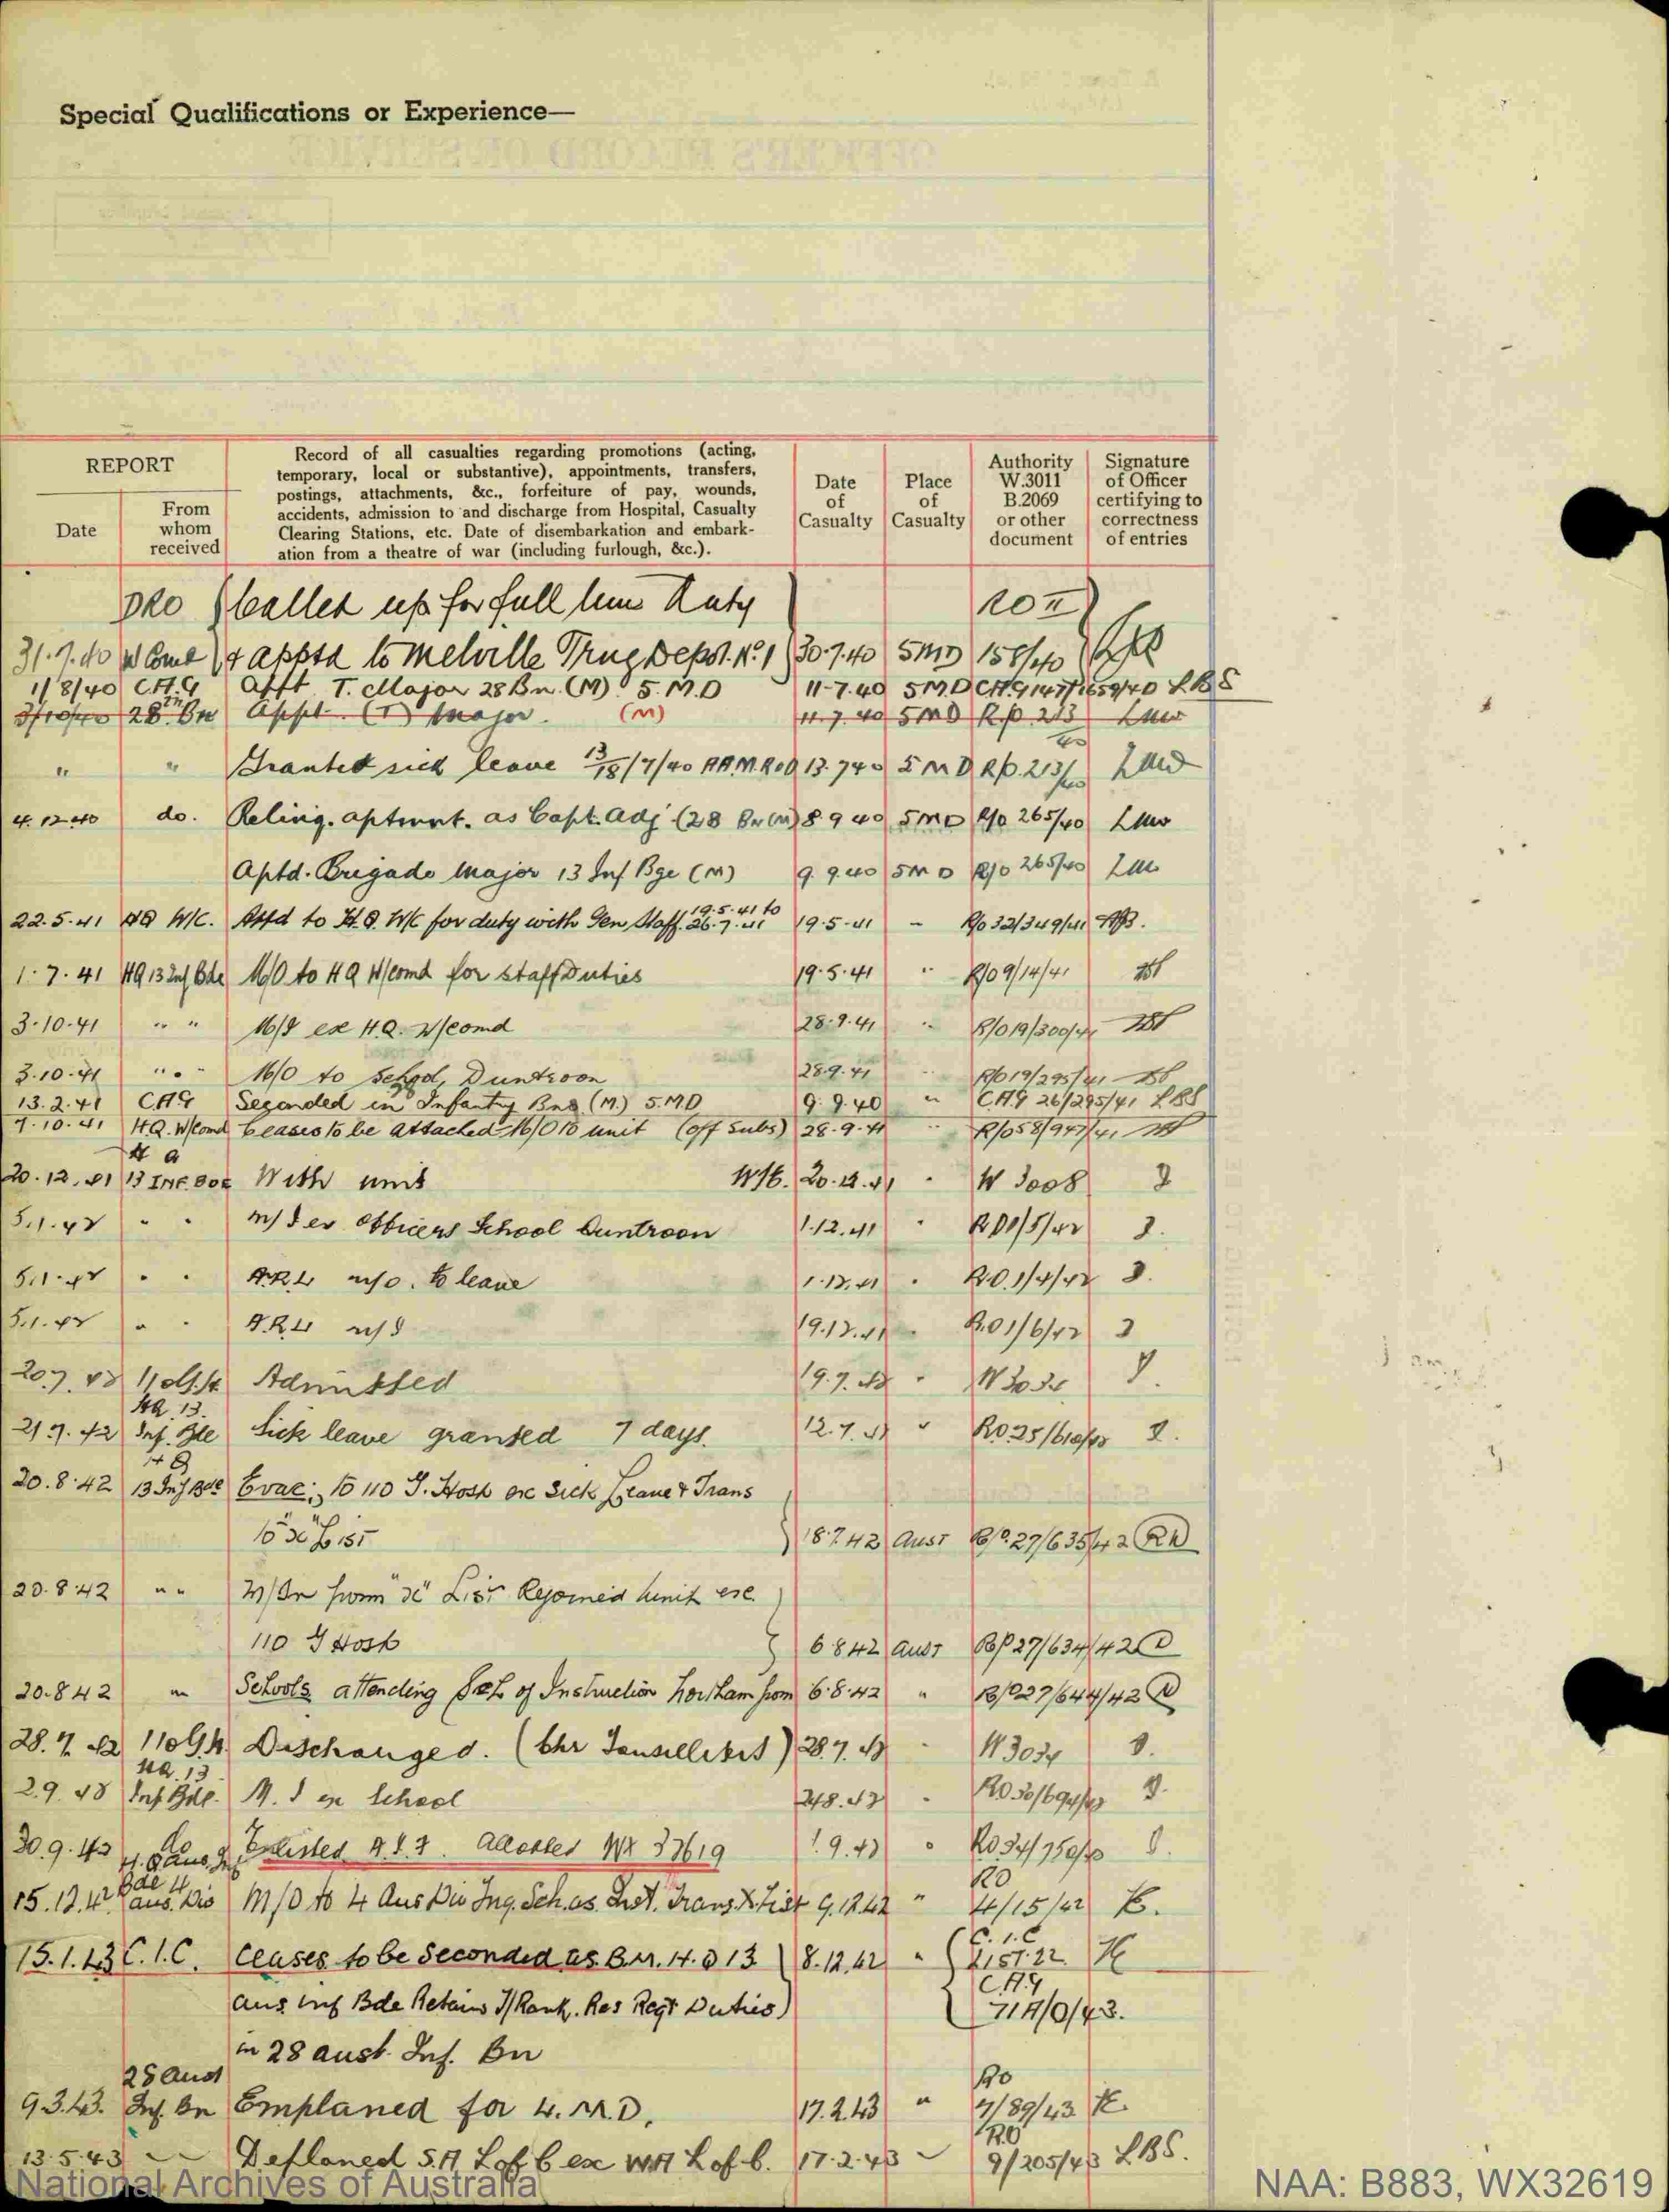 Special Qualifications or Experience—
REPORT
Date
From whom received
Record of all casualties regarding promotions (acting,
temporary, local or substantive), appointments, transfers,
postings, attachments, &c., forfeiture of pay, wounds,
accidents, admission to and discharge from Hospital, Casualty
Clearing Stations, etc. Date of disembarkation and embark-
ation from a theatre of war (including furlough, &c.).
Date of Casualty
Place of Casualty
Authority W.3011 B.2069 or other document
Signature of Officer certifying to correctness of entries
DRO Called up for full time Duty
31.7.40 W Comd & apptd to Melville Trng Depot. No. 1 30.7.40 5MD 158/40
1/8/40 C.A.G Appt. T. Major 28 Bn. (M) 5.M.D 11-7.40 5MD LBS
3/10/40 28th Bn Appt. (T) Major. (M) 11.7.40 5MD R/O 213
" " Granted sick leave 13/18/7/40 13.7.40 5MD R/O. 213/40
4.12.40 do. Relinq. aptmnt. as Capt. Adj (28 Bn (M) 8 9 40 5MD R/O 265/40
Aptd. Brigade Major 13 Inf Bge (M) 9.9.40 5MD R/O 265/40
22.5.41 HQ W/C. Attd to H.Q. W/C for duty with Gen Staff. 19.5.41 to 26.7.41 19.5.41 - R/O 32/349/41
1.7.41 HQ 13 Inf Bde M/O to HQ W/comd for Staff Duties 19.5.41 " R/O 9/14/41
3.10.41 " " M/I ex H.Q. W/comd 28.9.41 " R/O 19/300/41
3.10.41 " " M/O to School, Duntroon 28.9.41 " R/O 19/295/41
13.2.41 CAG Seconded in Infantry Bns (M.) 5.M.D 9.9.40 " C.A.G 26/295/41 LBS
7.10.41 H.Q. W/Comd Ceases to be attached M/O to unit (Off Subs) 28.9.41 " R/O 58/947/41
20.12.41 HQ 13 INF. BDE With unit W/C. 20.12.41 " W 3008
5.1.42 " " M/I ex Officers School Duntroon 1.12.41 " RO 1/5/42
5.1.42 " " A.R.L M/O. to leave 1.12.41 " R.O. 1/4/42
5.1.42 " " A.R.L M/I 19.12.41 " R.O 1/6/42
20.7.42 110 G.H. Admitted 19.7.42 " W 3034
21.7.42 HQ. 13. Inf. Bde Sick leave granted 7 days. 12.7.42 " RO 25/610/42
20.8.42 HQ 13 Inf Bde Evac; to 110 G. Hosp ex Sick Leave & Trans
to "X" List 18.7.42 Aust R/O 27/635/42
20.8.42 " " M/In from "X" List Rejoined Unit ex.
110 G Hosp 6 8 42 Aust R/O 27/634/42
20.8.42 " Schools attending Sch of Instruction Northam from 6.8.42 " R/O 27/644/42
28.7.42 110 G.H. Discharged. (Chr Tonsillitis) 28.7.42 - W 3034
2.9.42 HQ. 13 Inf Bde. M. I ex School 24.8.42 - RO 30/694/42
30.9.42 do Enlisted A.I.F. Allotted WX 32619 1.9.42 " RO 34/750/42
15.12.42 H.Q Aus. Inf Bde 4 Aus. Div M/O to 4 Aus Div Trg. Sch. as Inst. Trans. X List 9.12.42 " RO 4/15/42 K.
15.1.43 C.I.C. Ceases to be Seconded as B.M. H.Q 13 8.12.42 " C.I.C LIST. 22 K
Aus Inf Bde Retains T/Rank. Res Regt Duties) C.A.G 71A/0/43.
in 28 Aust. Inf. Bn
9.3.43. 28 Aust Inf. Bn Emplaned for 4. M.D. 17.2.43 " RO 7/89/43 K.
13.5.43 " Deplaned S.A L of C ex WA L of C. 17.2.43 " RO 9/205/43 LBS.
National Archives of Australia
NAA: B883, WX32619